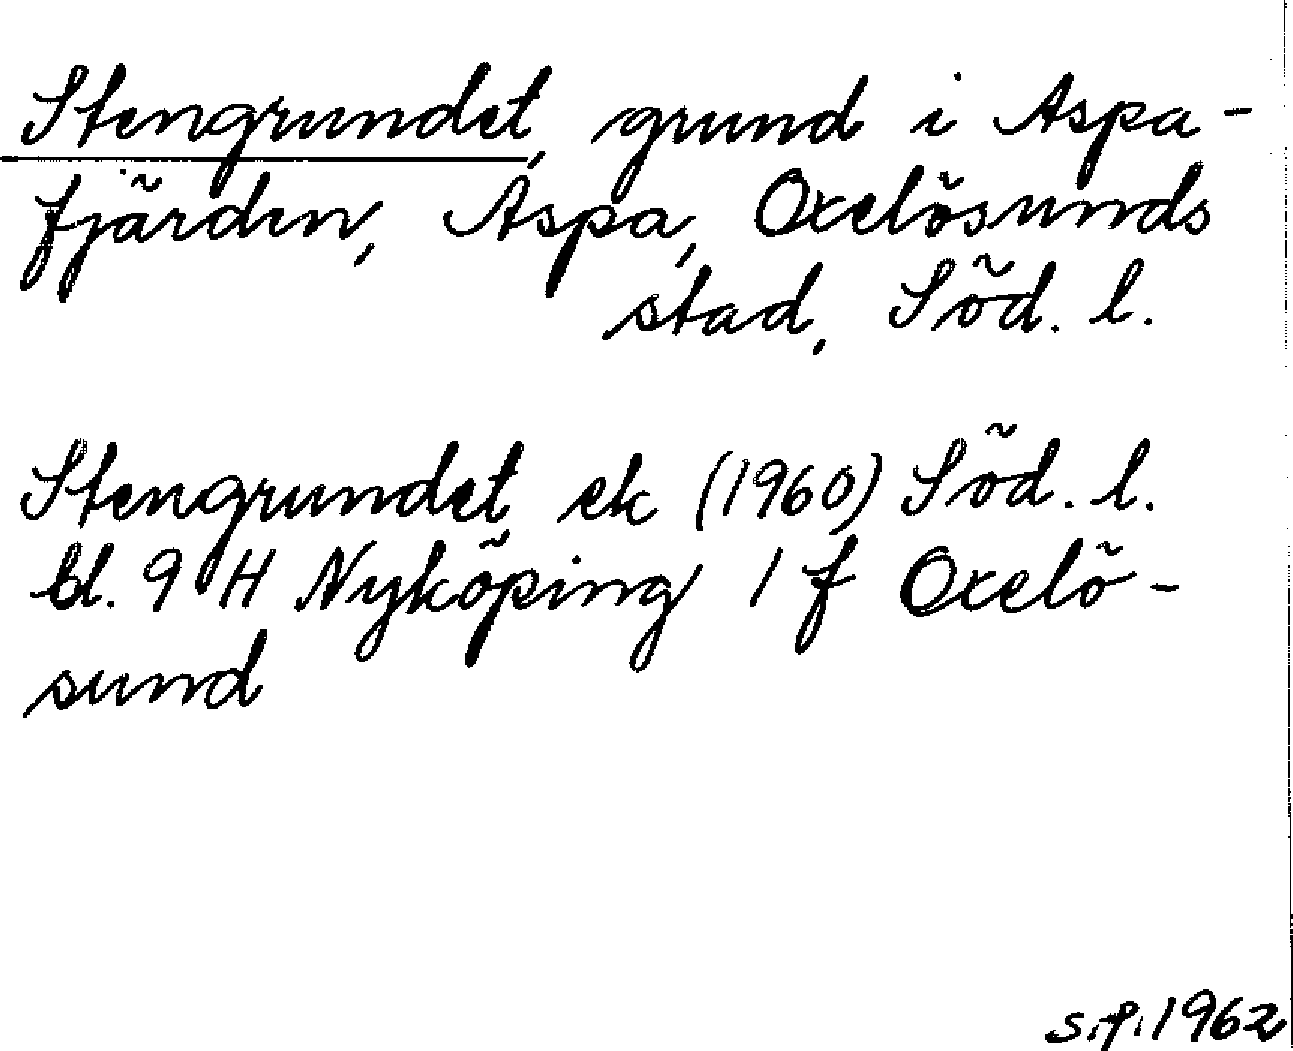 Stengrundet, grund i Aspa-
fjärden, Aspa, Oxelösunds
stad, Söd. l.
Stengrundet ek (1960) Söd. l.
bl. 9 H Nyköping 1 f Oxelö-
sund
s.f. 1962